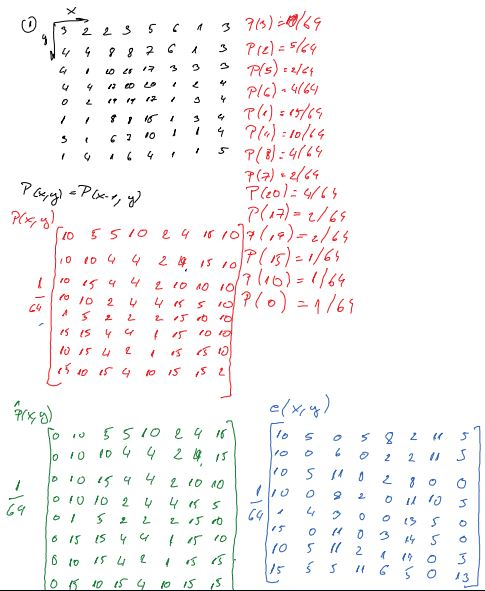 ① x
y
3 2 2 3 5 6 1 3
4 4 8 8 7 6 1 3
4 1 20 20 17 3 3 3
4 4 17 20 20 1 2 4
0 2 19 19 17 1 3 4
1 1 8 8 15 1 3 4
3 1 6 7 10 1 1 4
1 4 1 6 4 1 1 5
P(x,y) = P(x-1, y)
P(3) = /64
P(2) = 5/64
P(5) = 2/64
P(6) = 4/64
P(1) = 15/64
P(4) = 10/64
P(8) = 4/64
P(7) = 2/64
P(20) = 4/64
P(17) = 2/64
P(19) = 2/64
P(15) = 1/64
P(10) = 1/64
P(0) = 1/64
P(x,y)
1/64
10 5 5 10 2 4 15 10
10 10 4 4 2 4 15 10
10 15 4 4 2 10 10 10
10 10 2 4 4 15 5 10
1 5 2 2 2 15 10 10
15 15 4 4 1 15 10 10
10 15 4 2 1 15 15 10
15 10 15 4 10 15 15 2
P̂(x,y)
1/64
0 10 5 5 10 2 4 15
0 10 10 4 4 2 4 15
0 10 15 4 4 2 10 10
0 10 10 2 4 4 15 5
0 1 5 2 2 2 15 10
0 15 15 4 4 1 15 10
0 10 15 4 2 1 15 15
0 15 10 15 4 10 15 15
e(x,y)
1/64
10 5 0 5 8 2 11 5
10 0 6 0 2 2 11 5
10 5 11 0 2 8 0 0
10 0 8 2 0 11 10 5
1 4 3 0 0 13 5 0
15 0 11 0 3 14 5 0
10 5 11 2 1 14 0 5
15 5 5 11 6 5 0 13